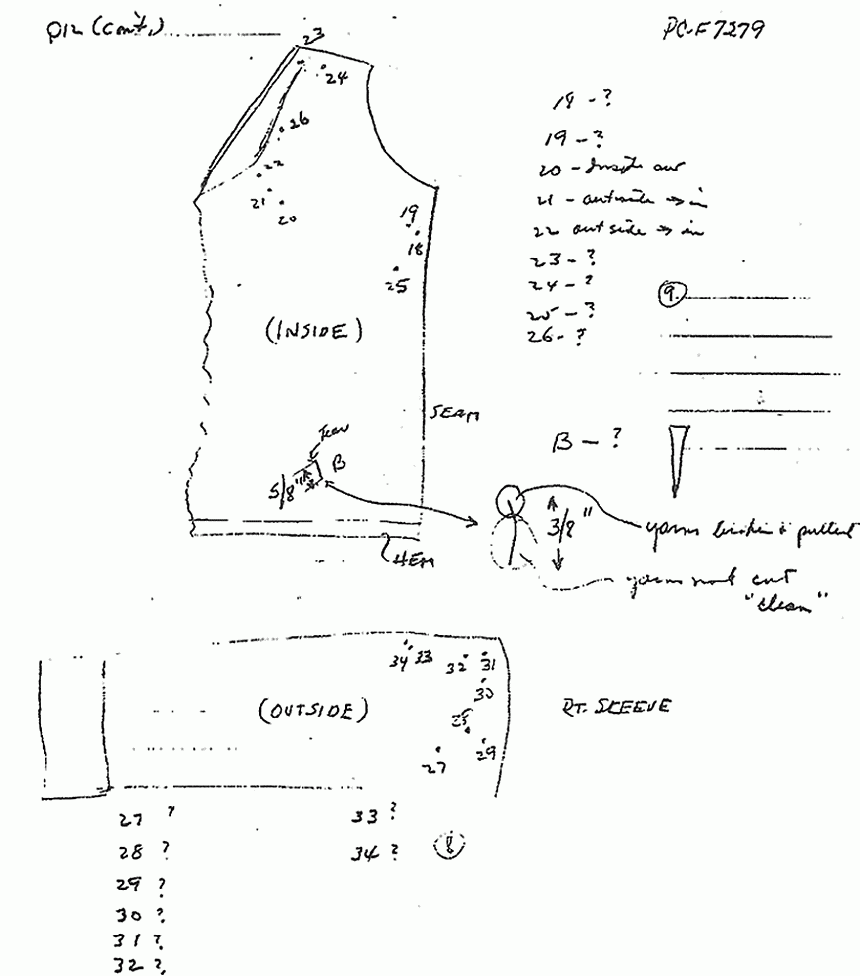 D12 (Cont.)
PC-F7279
23
24
26
22
21
20
19
18
25
(INSIDE)
SEAM
Tear
B
5/8"
HEM
18 - ?
19 - ?
20 - Inside out
21 - outside → in
22 outside → in
23 - ?
24 - ?
25 - ?
26 - ?
9.
B - ?
3/8"
yarns broken & pulled
yarns not cut
"clean"
34 33 32 31
30
28
29
27
(OUTSIDE)
RT. SLEEVE
27 ?
28 ?
29 ?
30 ?
31 ?
32 ?
33 ?
34 ?
8